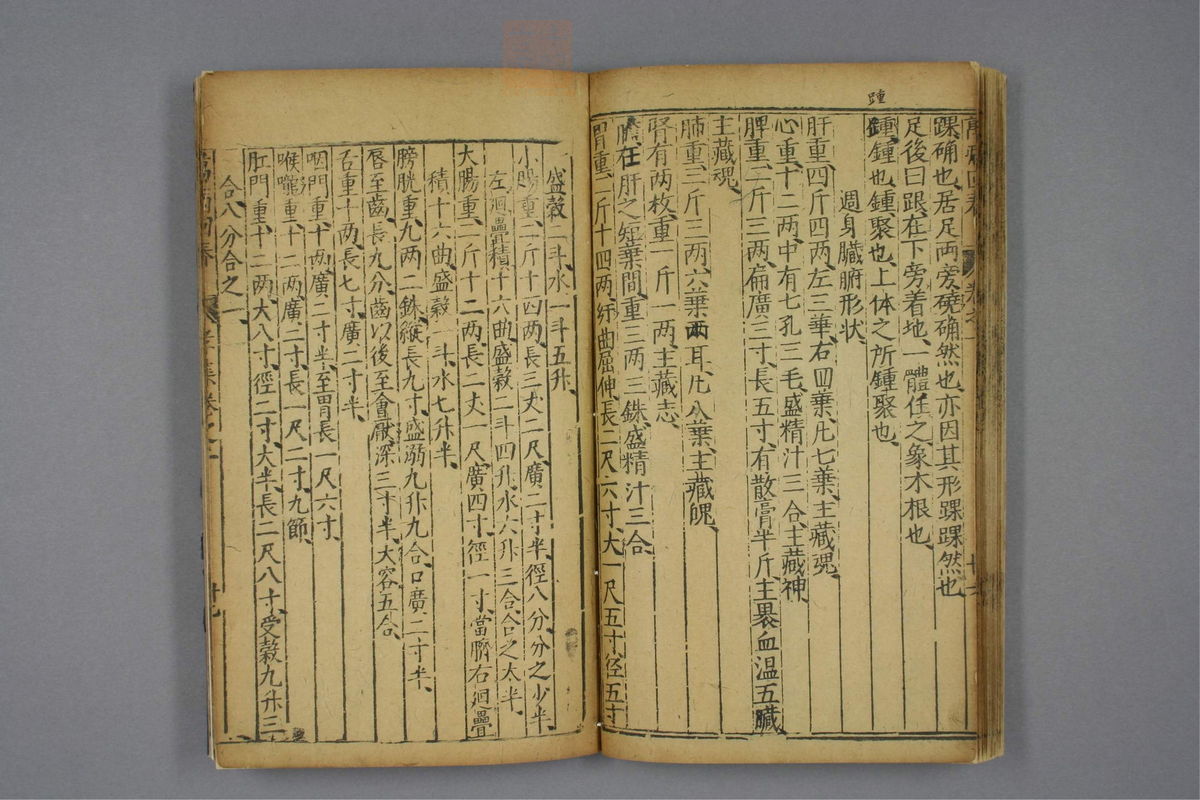 踵
踝确也居足兩旁磽确然也亦因其形踝踝然也
足後曰跟在下旁着地一體任之象木根也
鍾鍾也鍾聚也上体之所鍾聚也
週身臟腑形状
肝重四斤四两左三葉右四葉凢七葉主藏魂
心重十二两中有七孔三毛盛精汁三合主藏神
脾重二斤三两扁廣三寸長五寸有散膏半斤主裹血温五臟
主藏魂
肺重三斤三两六葉兩耳凢八葉主藏魄
腎有两枚重一斤一两主藏志
膽在肝之短葉間重三两三銖盛精汁三合
胃重二斤十四两紆曲屈伸長二尺六寸大一尺五寸径五寸
盛穀二斗水一斗五升
小腸重二斤十四两長三丈二尺廣二寸半徑八分分之少半
左廻疊積十六曲盛穀二斗四升水六升三合合之太半
大腸重二斤十二两長二丈一尺廣四寸徑一寸當臍右廻疊
積十六曲盛穀一斗水七升半
膀胱重九两二銖縱長九寸盛溺九升九合口廣二寸半
唇至齒長九分齒以後至會厭深三寸半大容五合
舌重十两長七寸廣二寸半
咽門重十两廣二寸半至胃長一尺六寸
喉嚨重十二两廣二寸長一尺二寸九節
肛門重十二两大八寸徑二寸大半長二尺八寸受穀九升三
合八分合之一